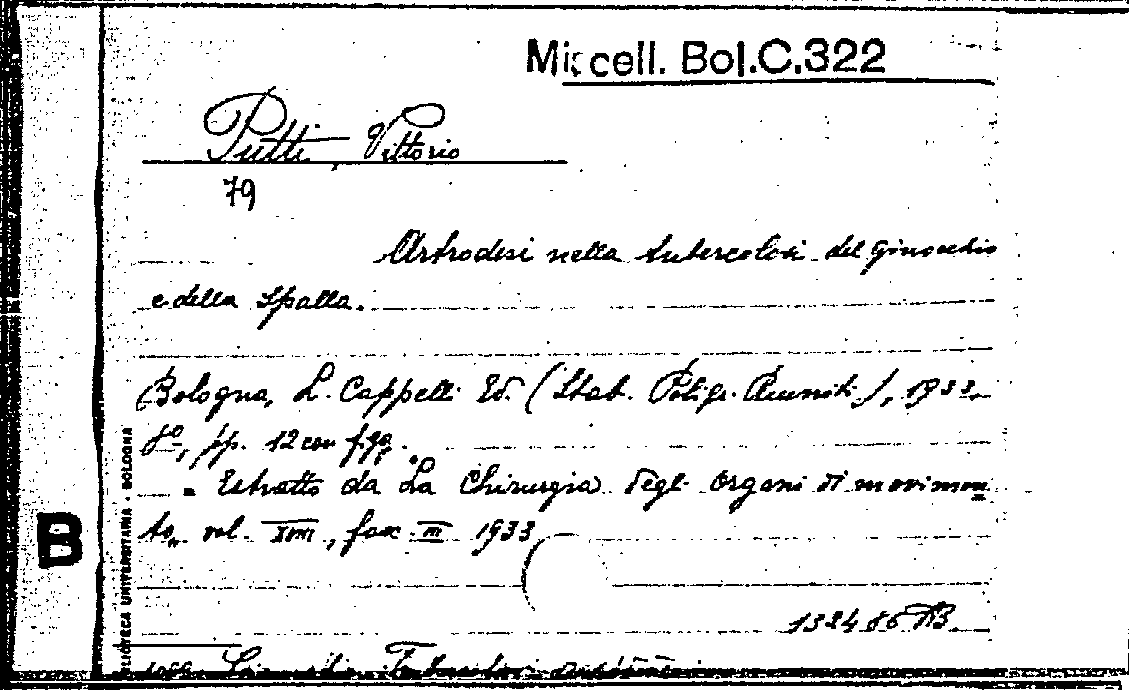 Miscell. Bol.C.322
Putti, Vittorio
79
Artrodesi nella tubercolosi del ginocchio
e della Spalla.
Bologna, L. Cappelli Ed. (Stab. Poligr. Riuniti), 1933.
8º, pp. 12 con figg.
Estratto da La Chirurgia degli Organi di movimen
to, vol. XVIII, fasc. III 1933
B
BIBLIOTECA UNIVERSITARIA - BOLOGNA
132486 AB